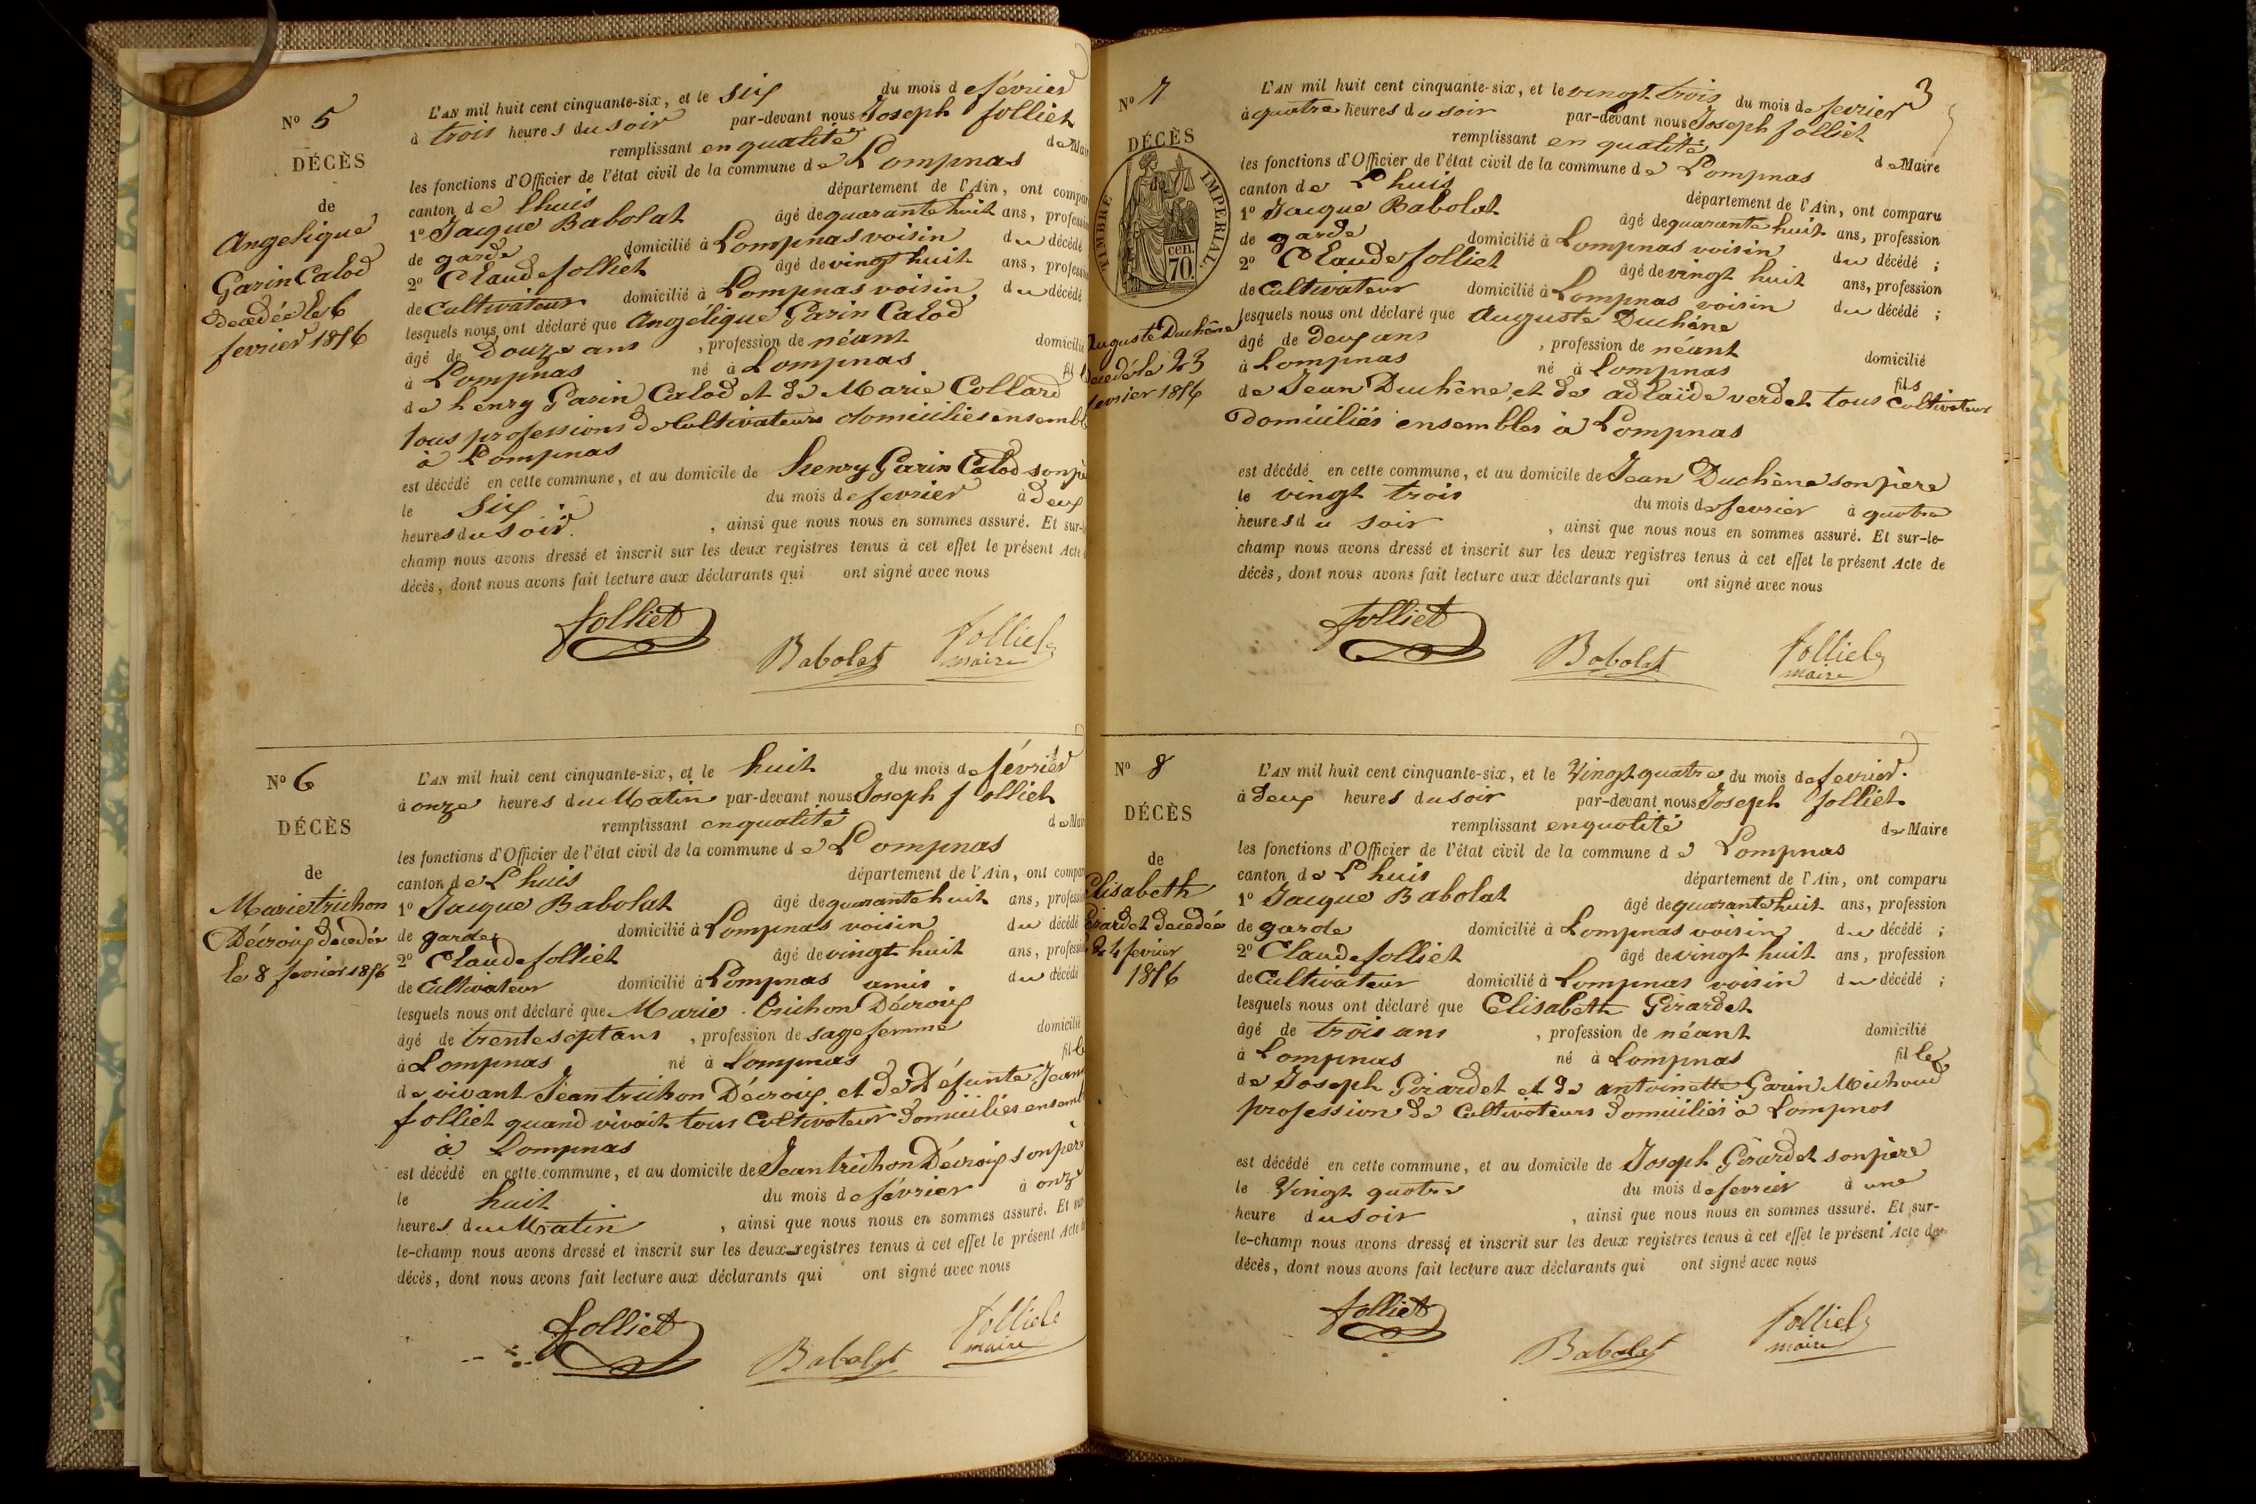 N° 5
DÉCÈS
de
Angelique
Garin Calod
decedée le 6
fevrier 1856
L'AN mil huit cent cinquante-six, et le six du mois de février
à trois heures du soir par-devant nous Joseph folliet
remplissant en qualité de Mair
les fonctions d'Officier de l'état civil de la commune de Lompnas
canton de Lhuis département de l'Ain, ont compar
1° Jacque Babolat âgé de quarante huit ans, profession
de garde domicilié à Lompnas voisin du décédé
2° Claude folliet âgé de vingt huit ans, profession
de Cultivateur domicilié à Lompnas voisin du décédé
lesquels nous ont déclaré que Angelique Garin Calod
âgé de Douze ans , profession de néant domicilié
à Lompnas né à Lompnas fil
de henry Garin Calod et de Marie Collard
tous professions de Cultivateurs domiciliés ensembl
à Lompnas
est décédé en cette commune, et au domicile de henry Garin Calod son pè
le Six du mois de fevrier à deux
heures du soir. , ainsi que nous nous en sommes assuré. Et sur-l
champ nous avons dressé et inscrit sur les deux registres tenus à cet effet le présent Acte
décès, dont nous avons fait lecture aux déclarants qui ont signé avec nous
folliet Babolat folliet
maire
N° 6
DÉCÈS
de
Marie trichon
Décroix decedée
le 8 fevrier 1856
L'AN mil huit cent cinquante-six, et le huit du mois de février
à onze heures du Matin par-devant nous Joseph folliet
remplissant en qualité de Mair
les fonctions d'Officier de l'état civil de la commune de Lompnas
canton de Lhuis département de l'Ain, ont compar
1° Jacque Babolat âgé de quarante huit ans, profession
de garde domicilié à Lompnas voisin du décédé
2° Claude folliet âgé de vingt huit ans, profession
de Cultivateur domicilié à Lompnas amis du décédé
lesquels nous ont déclaré que Marie trichon Décroix
âgé de trente sept ans , profession de sage femme domicilié
à Lompnas né à Lompnas fille
de vivant Jean trichon Décroix et de Défunte Jeann
folliet quand vivait tous Cultivateur Domiciliés ensembl
à Lompnas
est décédé en cette commune, et au domicile de Jean trichon Décroix son père
le huit du mois de février à onze
heures du Matin , ainsi que nous nous en sommes assuré. Et sur
le-champ nous avons dressé et inscrit sur les deux registres tenus à cet effet le présent Acte de
décès, dont nous avons fait lecture aux déclarants qui ont signé avec nous
folliet Babolat folliet
maire
3
N° 7
DÉCÈS
de
TIMBRE IMPERIAL
70 cen.
Auguste Duchêne
decedé le 23
fevrier 1856
L'AN mil huit cent cinquante-six, et le vingt trois du mois de fevrier
à quatre heures du soir par-devant nous Joseph folliet
remplissant en qualité de Maire
les fonctions d'Officier de l'état civil de la commune de Lompnas
canton de Lhuis département de l'Ain, ont comparu
1° Jacque Babolat âgé de quarante huit ans, profession
de garde domicilié à Lompnas voisin du décédé ;
2° Claude folliet âgé de vingt huit ans, profession
de Cultivateur domicilié à Lompnas voisin du décédé ;
lesquels nous ont déclaré que Auguste Duchêne
âgé de deux ans , profession de néant domicilié
à Lompnas né à Lompnas fils
de Jean Duchêne, et de adlaïde verdet tous Cultivateur
Domiciliés ensembles à Lompnas
est décédé en cette commune, et au domicile de Jean Duchêne son père
le vingt trois du mois de fevrier à quatre
heures du soir , ainsi que nous nous en sommes assuré. Et sur-le-
champ nous avons dressé et inscrit sur les deux registres tenus à cet effet le présent Acte de
décès, dont nous avons fait lecture aux déclarants qui ont signé avec nous
folliet Babolat folliet
maire
N° 8
DÉCÈS
de
Elisabeth
Gerardet decedée
24 fevrier
1856
L'AN mil huit cent cinquante-six, et le Vingt quatre du mois de fevrier.
à Deux heures du soir par-devant nous Joseph folliet
remplissant en qualité de Maire
les fonctions d'Officier de l'état civil de la commune de Lompnas
canton de Lhuis département de l'Ain, ont comparu
1° Jacque Babolat âgé de quarante huit ans, profession
de garde domicilié à Lompnas voisin du décédé ;
2° Claude folliet âgé de vingt huit ans, profession
de Cultivateur domicilié à Lompnas voisin du décédé ;
lesquels nous ont déclaré que Elisabeth Gérardet
âgé de trois ans , profession de néant domicilié
à Lompnas né à Lompnas fille
de Joseph Gérardet et de antoinette Garin Michoud
profession de Cultivateurs Domiciliés à Lompnas
est décédé en cette commune, et au domicile de Joseph Gérardet son père
le Vingt quatre du mois de fevrier à une
heure du soir , ainsi que nous nous en sommes assuré. Et sur-
le-champ nous avons dressé et inscrit sur les deux registres tenus à cet effet le présent Acte de
décès, dont nous avons fait lecture aux déclarants qui ont signé avec nous
folliet Babolat folliet
maire